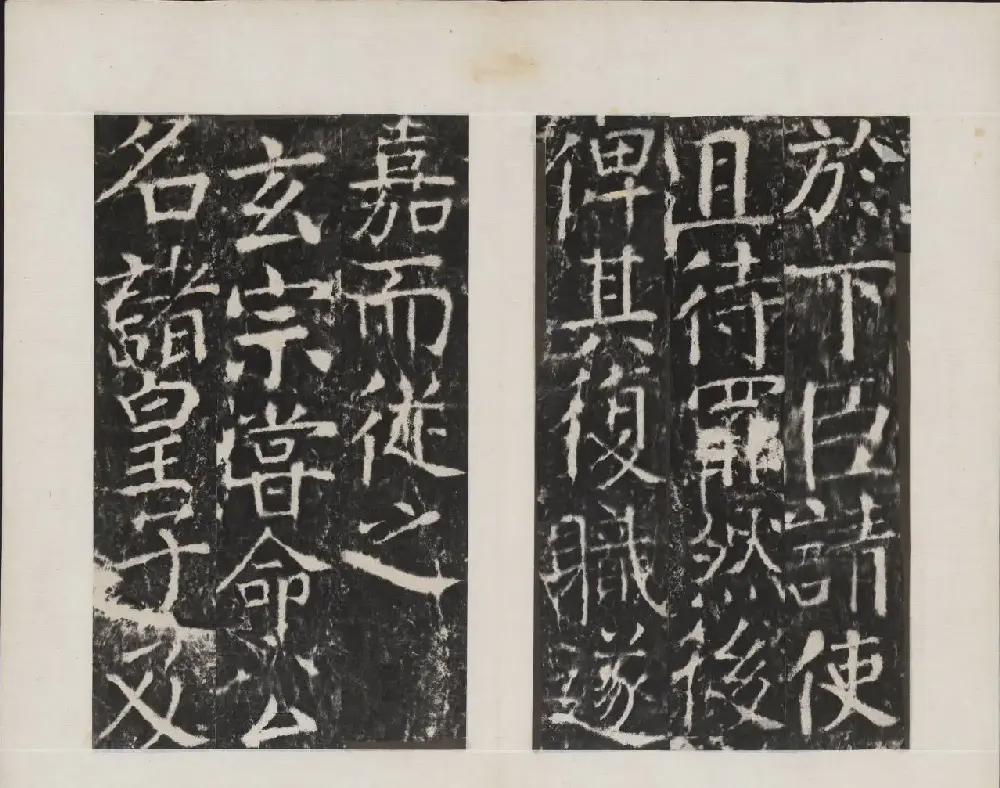 於下臣請使
且待罪然後
俾其復職遂
嘉而從之
玄宗嘗命公
名諸皇子及